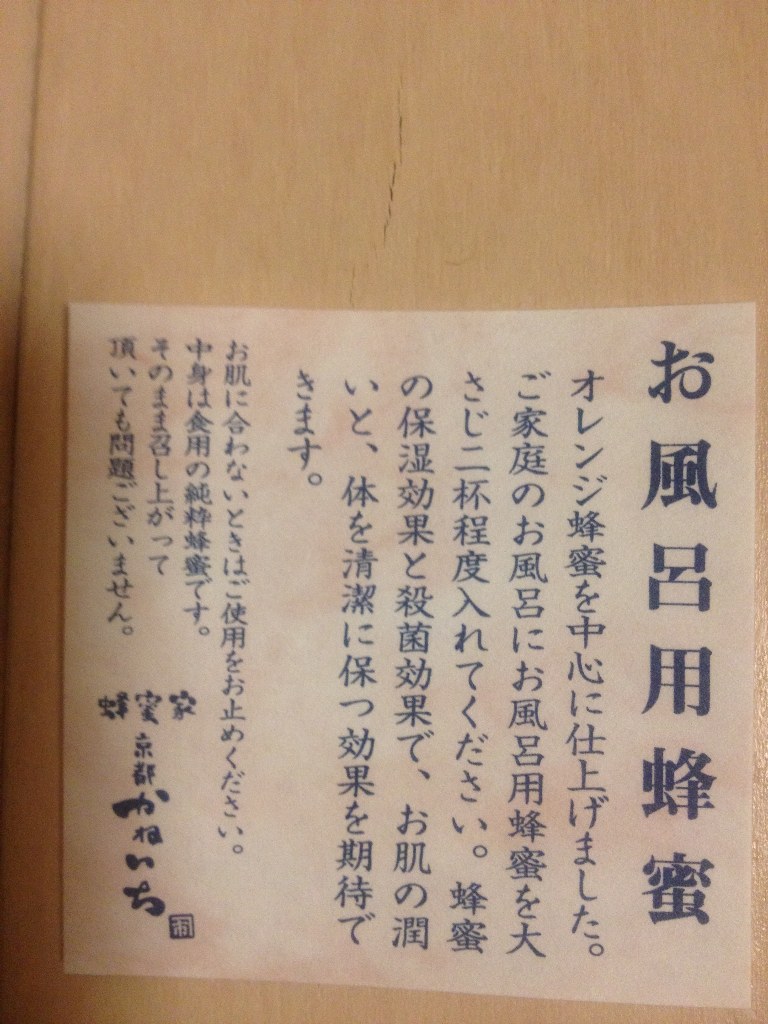 お風呂用蜂蜜
オレンジ蜂蜜を中心に仕上げました。
ご家庭のお風呂にお風呂用蜂蜜を大
さじ二杯程度入れてください。蜂蜜
の保湿効果と殺菌効果で、お肌の潤
いと、体を清潔に保つ効果を期待で
きます。
お肌に合わないときはご使用をお止めください。
中身は食用の純粋蜂蜜です。
そのまま召し上がって
頂いても問題ございません。
蜂蜜家
京都
かねいち